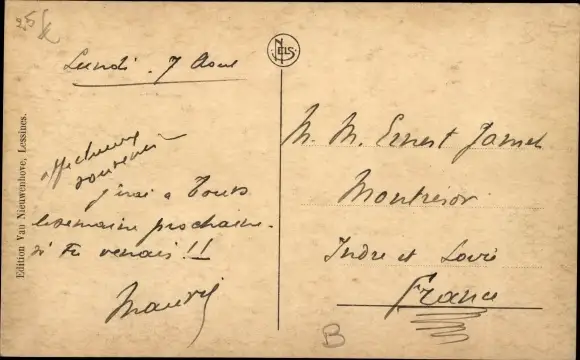 Lundi. 7 Août
affectueux
souvenir
j'irai à Tours
la semaine prochaine.
si tu venais!!
Edition Van Nieuwenhove, Lessines.
NELS
M. M. Ernest
Montrésor
Indre et Loire
France
B